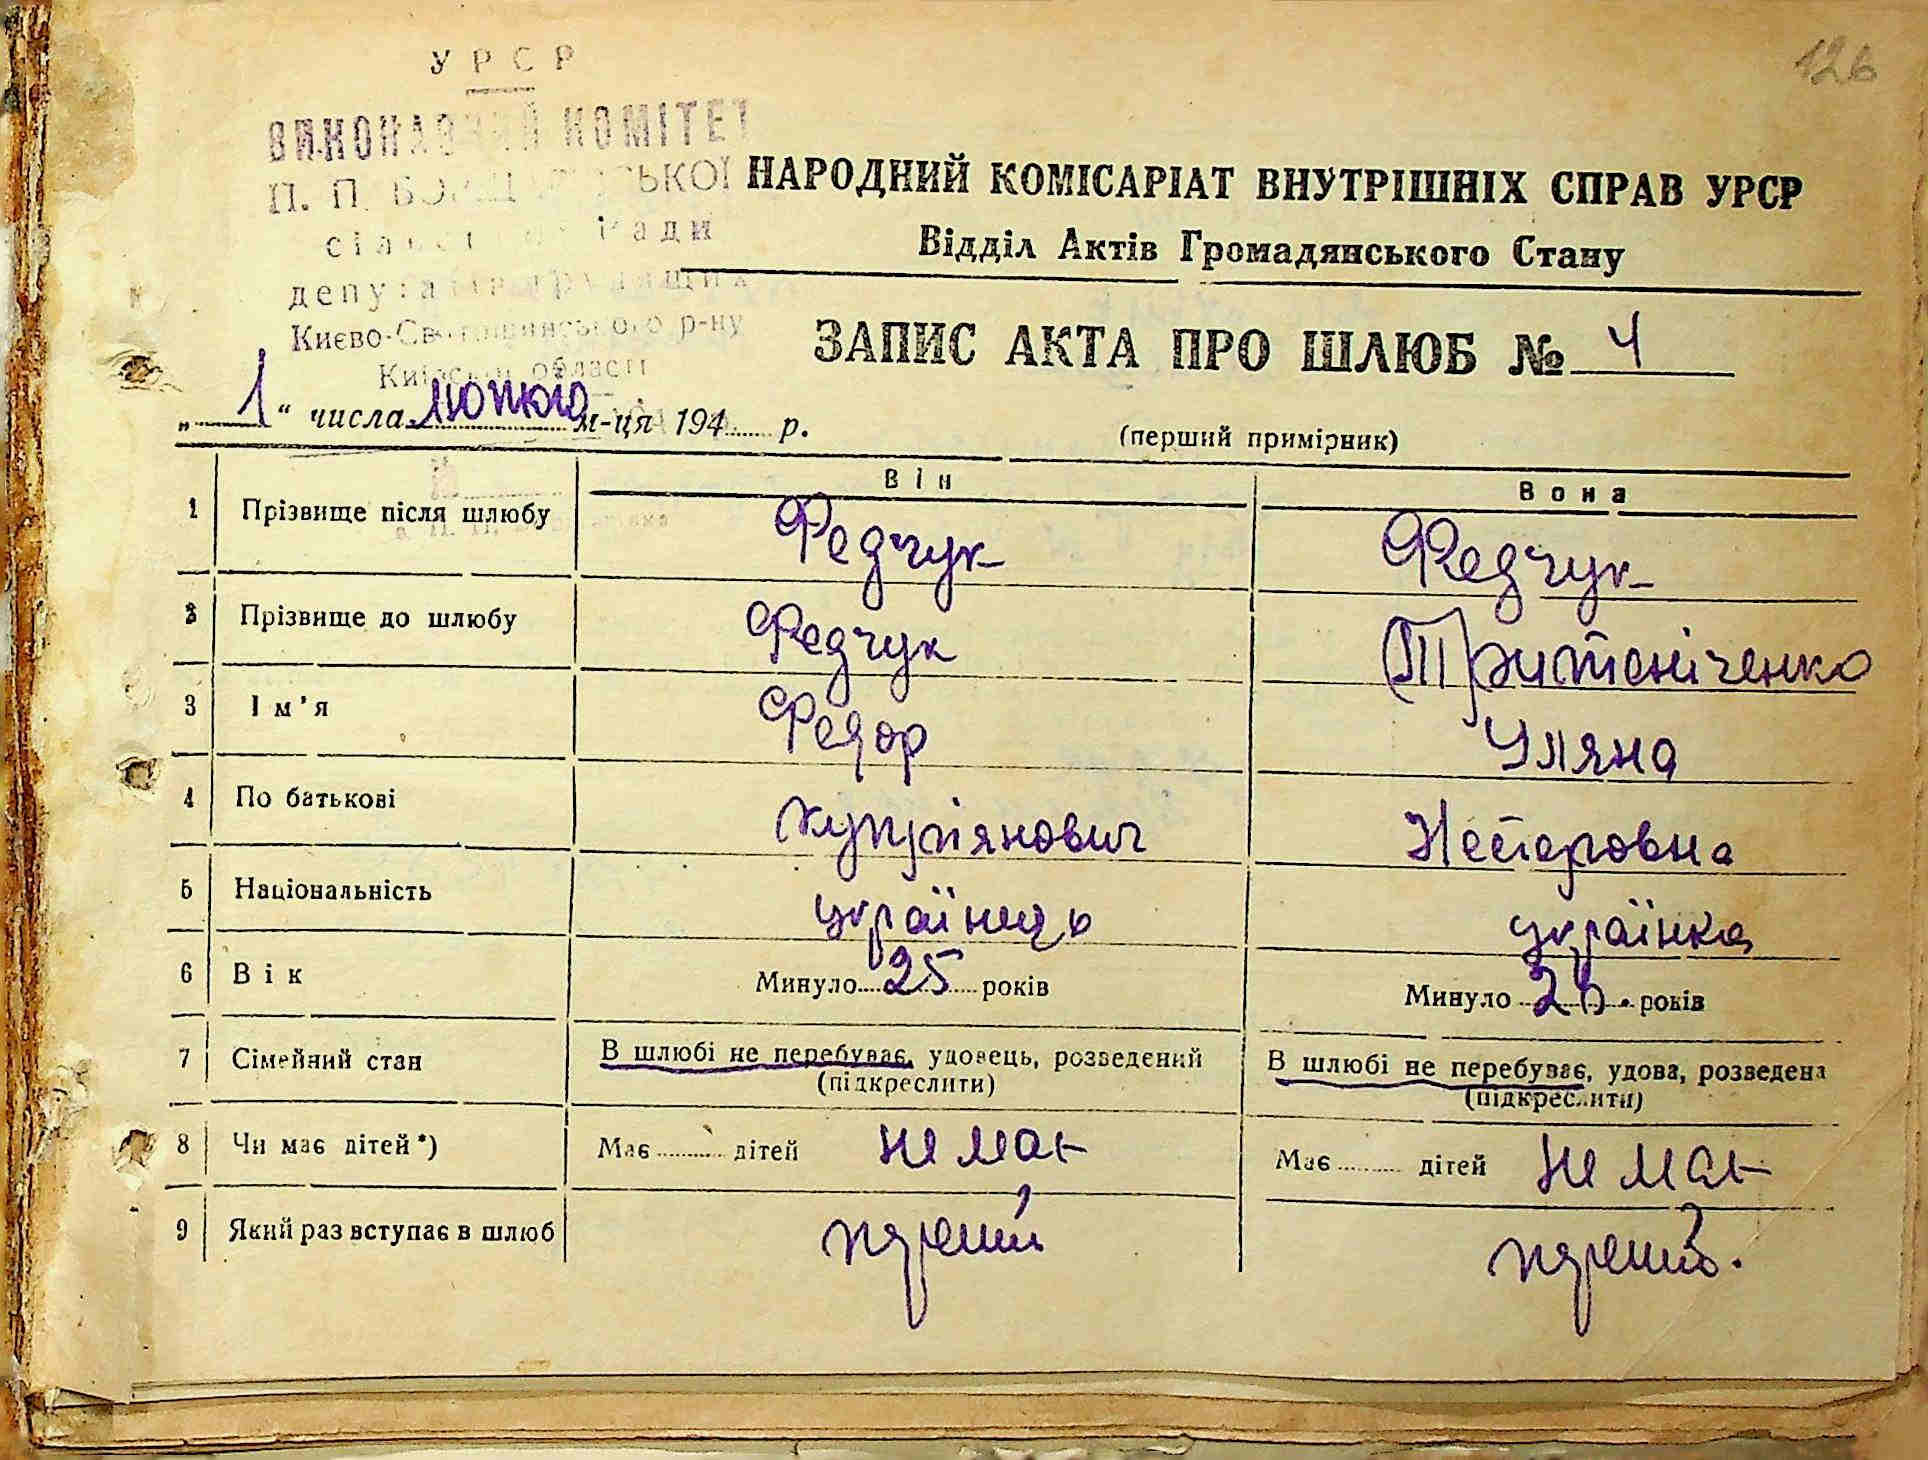 126
УРСР
ВИКОНАВЧИЙ КОМІТЕТ
П. П. БОРЩАГІВСЬКОЇ
сільської Ради
депутатів трудящих
Києво-Святошинського р-ну
Київської області
НАРОДНИЙ КОМІСАРІАТ ВНУТРІШНІХ СПРАВ УРСР
Відділ Актів Громадянського Стану
ЗАПИС АКТА ПРО ШЛЮБ № 4
„ 1 “ числа лютого м-ця 194 р.
(перший примірник)
Він Вона
1 Прізвище після шлюбу Федчук Федчук
2 Прізвище до шлюбу Федчук
3 Ім'я Федор Уляна
4 По батькові Купріянович Несторовна
5 Національність українець українка
6 Вік Минуло 25 років Минуло років
7 Сімейний стан В шлюбі не перебуває, удовець, розведений В шлюбі не перебуває, удова, розведена
(підкреслити) (підкреслити)
8 Чи має дітей*) Має дітей не має Має дітей не має
9 Який раз вступає в шлюб перший перший.